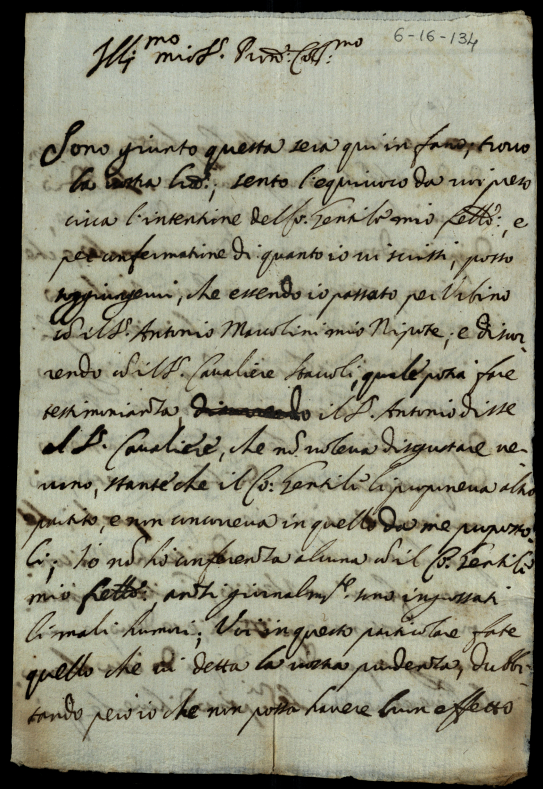 6-16-134
Ill:mo mio Sr. Pron: Coll:mo
Sono giunto questa sera qui in fano; trovo
la vostra; sento l'equivoco da voi preso
circa l'intentione del Co: Gentili mio frãllo; e
per confermatione di quanto io vi scrissi, posso
soggiungervi, che essendo io passato per Urbino
cõ il Sr. Antonio Marcolini mio Nipote; e discor-
rendo cõ il Sr. Cavaliere Staccoli, quale potrà fare
testimonianza, il Sr. Antonio disse
al Sr. Cavaliere, che nõ voleva disgustare ve-
runo, stante che il Co: Gentili li proponeva altro
partito, e non concorreva in quello da me propostto-
li; Io nõ hò conferenza alcuna cõ il Co: Gentili
mio frãllo; anzi giornalmte. sono ingrossati
li mali humori; Voi in questo particolare fate
quello che vi detta la vostra prudenza, dubbi-
tando però io che non possa havere buon effetto